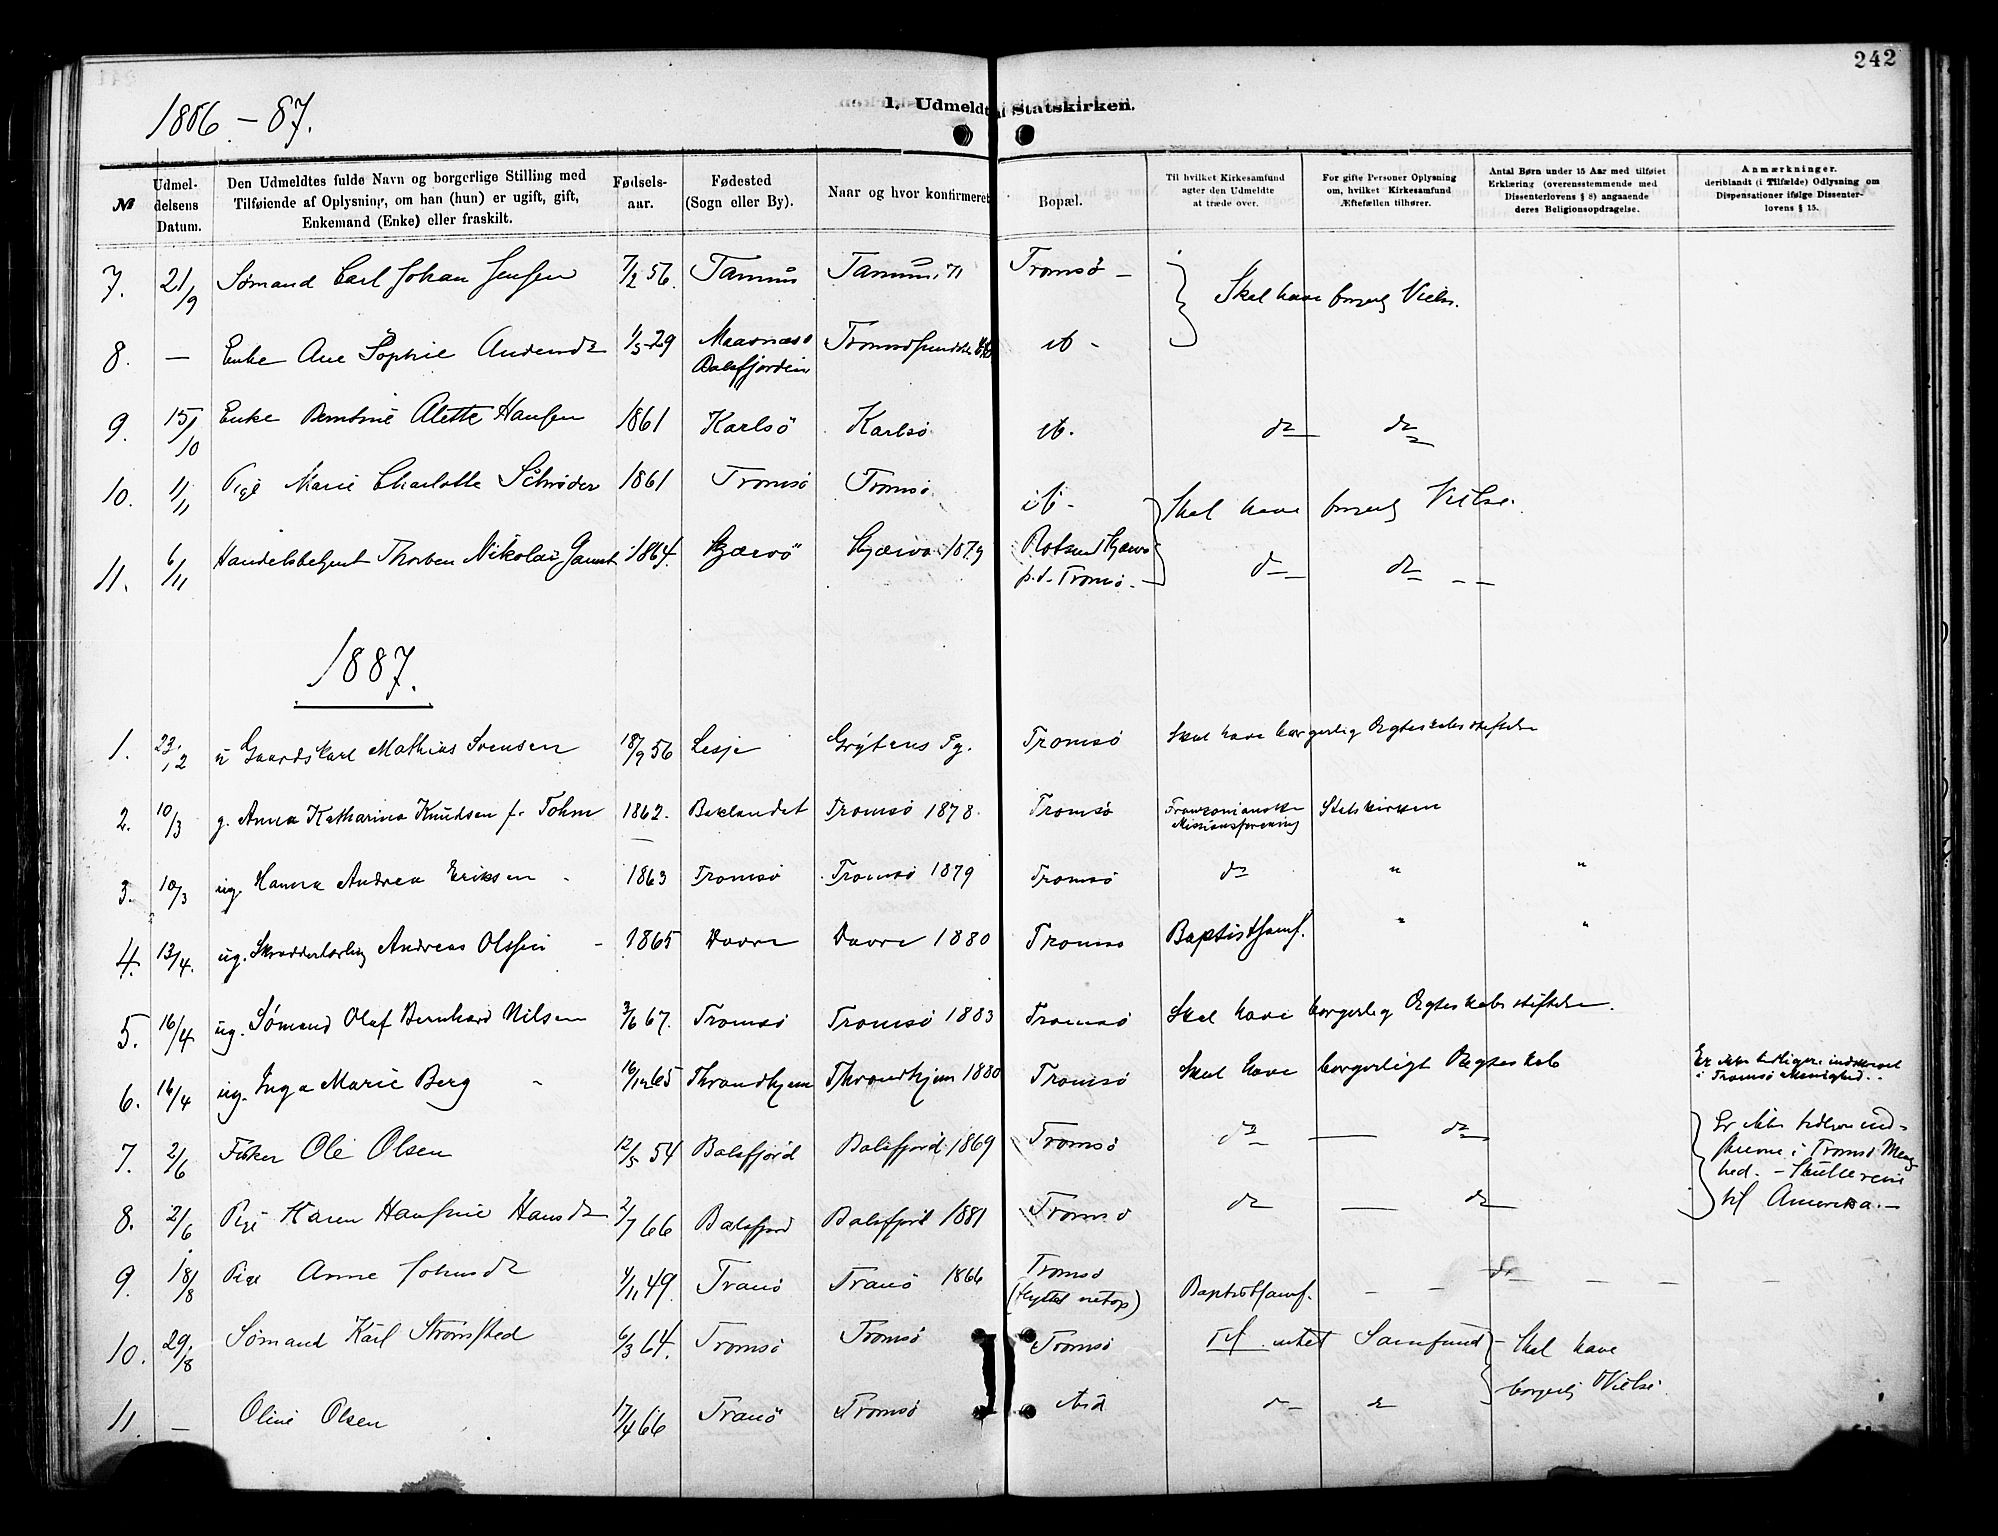 242
1886 – 87.
1. Udmeldt af Statskirken.
№
Udmel-
delsens
Datum.
Den Udmeldtes fulde Navn og borgerlige Stilling med
Tilføiende af Oplysning, om han (hun) er ugift, gift,
Enkemand (Enke) eller fraskilt.
Fødsels-
aar.
Fødested
(Sogn eller By).
Naar og hvor konfirmeret
Bopæl.
Til hvilket Kirkesamfund
agter den Udmeldte
at træde over.
For gifte Personer Oplysning
om, hvilket Kirkesamfund
Ægtefællen tilhører.
Antal Børn under 15 Aar med tilføiet
Erklæring (overensstemmende med
Dissenterlovens § 8) angaaende
deres Religionsopdragelse.
Anmærkninger.
deriblandt (i Tilfælde) Odlysning om
Dispensationer ifølge Dissenter-
lovens § 15.
7. 21/9 Sømand Carl Johan Jensen 7/2 56. Tanum Tanum 71 Tromsø – Skal have borgerlig Vielse.
8. — Enke Ane Sophie Andersdr 1/5 29 Balsfjorden
9. 15/10 Enke Alette Hansen 1861 Karlsø Karlsø do do
10. 1/11 Pige Marie Charlotte Schrøder 1861 Tromsø Tromsø Skal have borgerlig Vielse.
11. 6/11 Handelsbetjent Nikolai 1864. Skjærvø Skjærvø 1879 Rotsund Skjærvø do do
p.t. Tromsø –
1887.
1. 23/2 u Gaardskarl Mathias Svensen 18/9 56 Lesje Grytens Pg. Tromsø Skal have borgerlig Ægteskabsstiftelse
2. 10/3 g. Anna Katharina Knudsen f. Tohm 1862. Tromsø 1878 Tromsø Missionsforening Statskirken
3. 10/3 ug. Hanna Andrea Eriksen 1863 Tromsø Tromsø 1879 Tromsø do " "
4. 13/4. ug. Skrædderlærling Andreas Olssen 1865 Dovre Dovre 1880 Tromsø Baptistsamf. " "
5. 16/4 ug. Sømand Olaf Bernhard Nilsen 3/6 67. Tromsø Tromsø 1883 Tromsø Skal have borgerlig Ægteskabsstiftelse.
6. 16/4 ug. Inga Marie Berg 16/12 65 Throndhjem Throndhjem 1880 Tromsø Skal have borgerligt Ægteskab Er ikke tidligere indskrevet
i Tromsø Menighed.
7. 2/6 Fisker Ole Olsen 12/5 54 Balsfjord Balsfjord 1869 Tromsø do — do Er ikke tidligere ind-
skrevne i Tromsø Menig
hed. – Skulle reise
8. 2/6 Pige Karen Hansine Hansdr 2/7 66 Balsfjord Balsfjord 1881 Tromsø do — do til Amerika. –
9. 18/8 Pige Anne Johnsdr 4/11 49. Tranø Tranø 1866 Tromsø
(flyttet netop) Baptistsamf. – – do – – –
10. 29/8 Sømand Karl Strømsted 6/3 64. Tromsø Tromsø Tromsø Til intet Samfund – Skal have
borgerlig Vielse.
11. — Oline Olsen 17/4 66 Tranø Tromsø do do